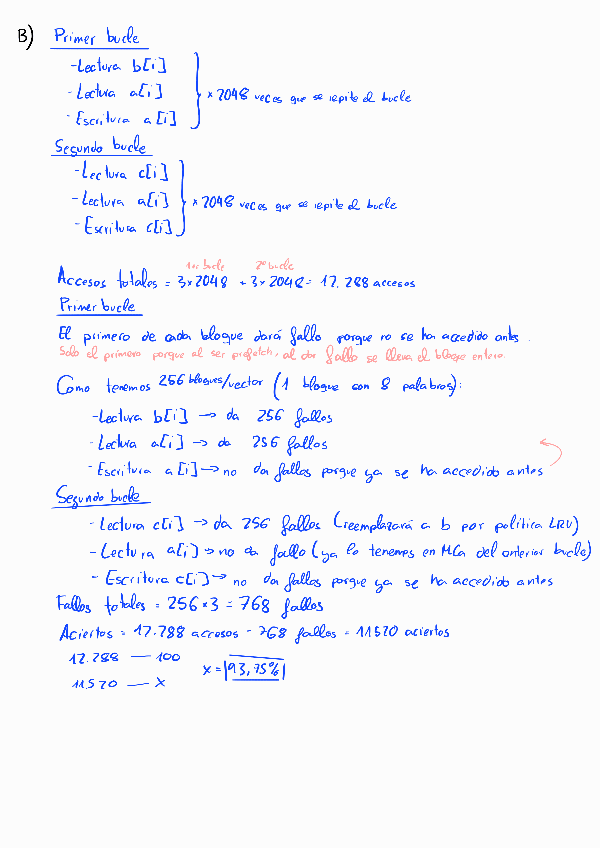 B) Primer bucle
- Lectura b[i]
- Lectura a[i]
- Escritura a[i]
× 2048 veces que se repite el bucle
Segundo bucle
- Lectura c[i]
- Lectura a[i]
- Escritura c[i]
× 2048 veces que se repite el bucle
1er bucle 2º bucle
Accesos totales = 3×2048 + 3×2048 = 12.288 accesos
Primer bucle
El primero de cada bloque dará fallo porque no se ha accedido antes.
Solo el primero porque al ser prefetch, al dar fallo se lleva el bloque entero
Como tenemos 256 bloques/vector (1 bloque con 8 palabras):
- Lectura b[i] → da 256 fallos
- Lectura a[i] → da 256 fallos
- Escritura a[i] → no da fallos porque ya se ha accedido antes
Segundo bucle
- Lectura c[i] → da 256 fallos (reemplazará a b por política LRU)
- Lectura a[i] → no da fallo (ya lo tenemos en MCa del anterior bucle)
- Escritura c[i] → no da fallos porque ya se ha accedido antes
Fallos totales = 256 × 3 = 768 fallos
Aciertos = 12.288 accesos - 768 fallos = 11520 aciertos
12.288 — 100
11.520 — x
x = 93,75%